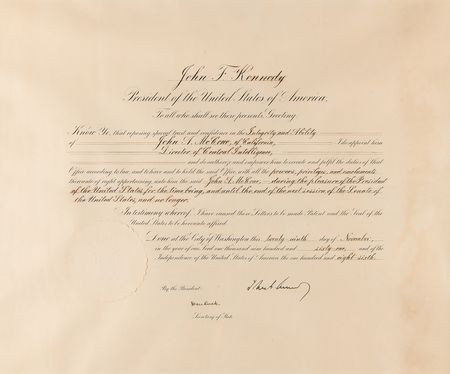 John F. Kennedy
President of the United States of America,
To all who shall see these presents, Greeting:
Know Ye, that reposing special trust and confidence in the Integrity and Ability
of John A. McCone, of California, I do appoint him
Director of Central Intelligence,
and do authorize and empower him to execute and fulfil the duties of that
Office according to law, and to have and to hold the said Office, with all the powers, privileges, and emoluments
thereunto of right appertaining unto him the said John A. McCone, during the pleasure of the President
of the United States for the time being, and until the end of the next session of the Senate of
the United States, and no longer.
In testimony whereof, I have caused these Letters to be made Patent and the Seal of the
United States to be hereunto affixed.
Done at the City of Washington this twenty-ninth day of November,
in the year of our Lord one thousand nine hundred and sixty-one and of the
Independence of the United States of America the one hundred and eighty-sixth.
By the President:
Dean Rusk
Secretary of State.